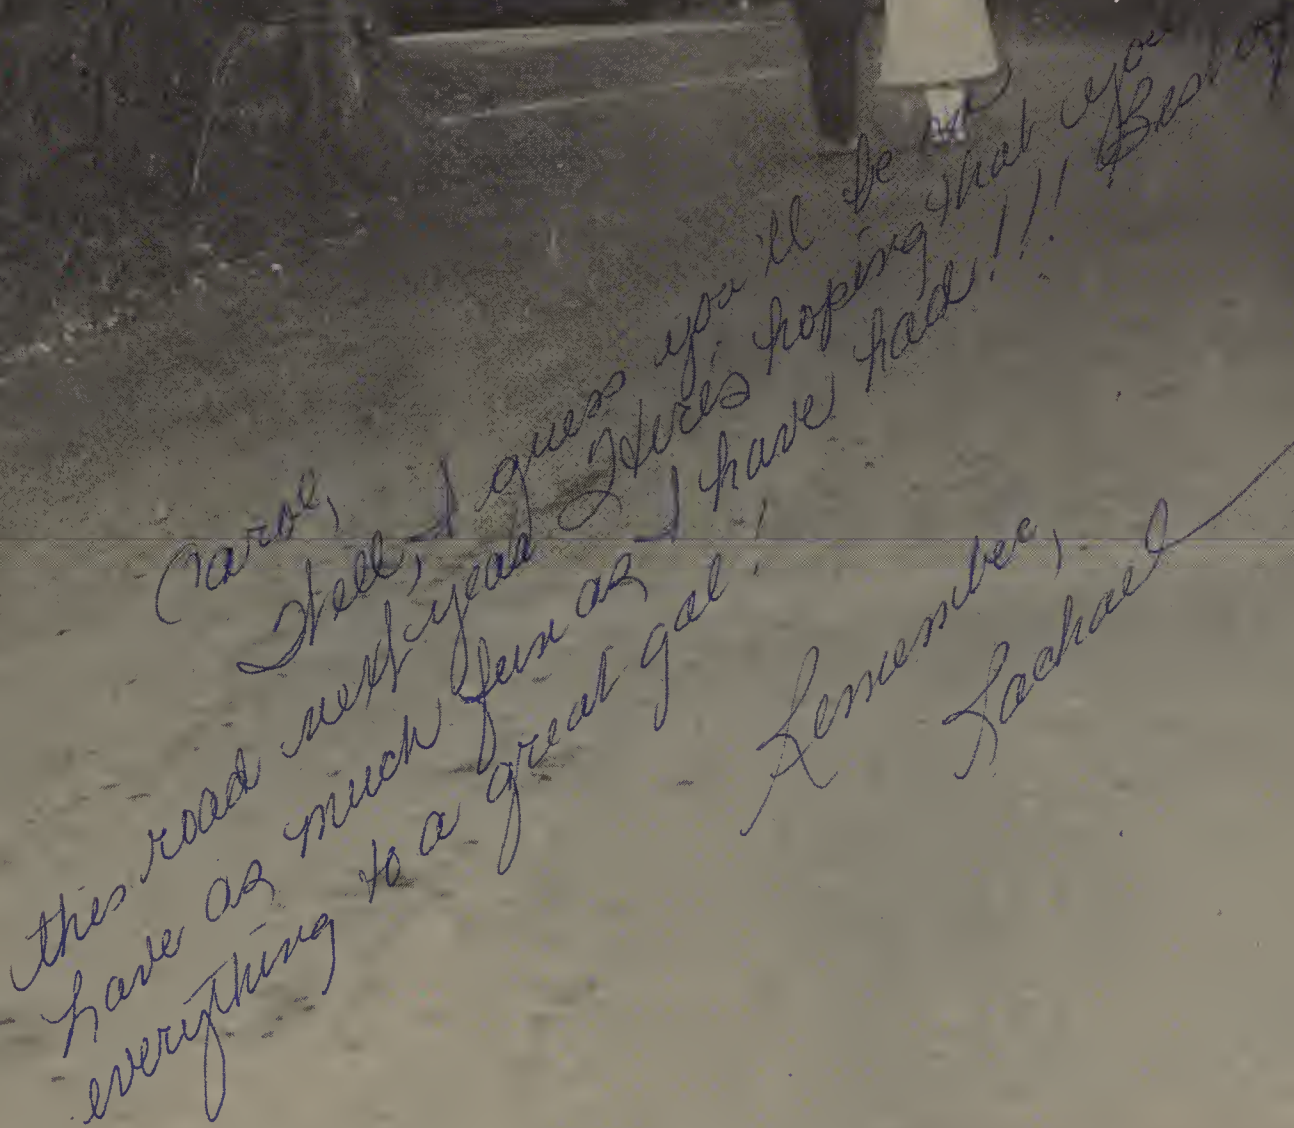 Carol,
Well, I guess you'll be on
this road next year. Here's hoping that you
have as much fun as I have had!!! Best of
everything to a great gal!
Remember,
Rachael